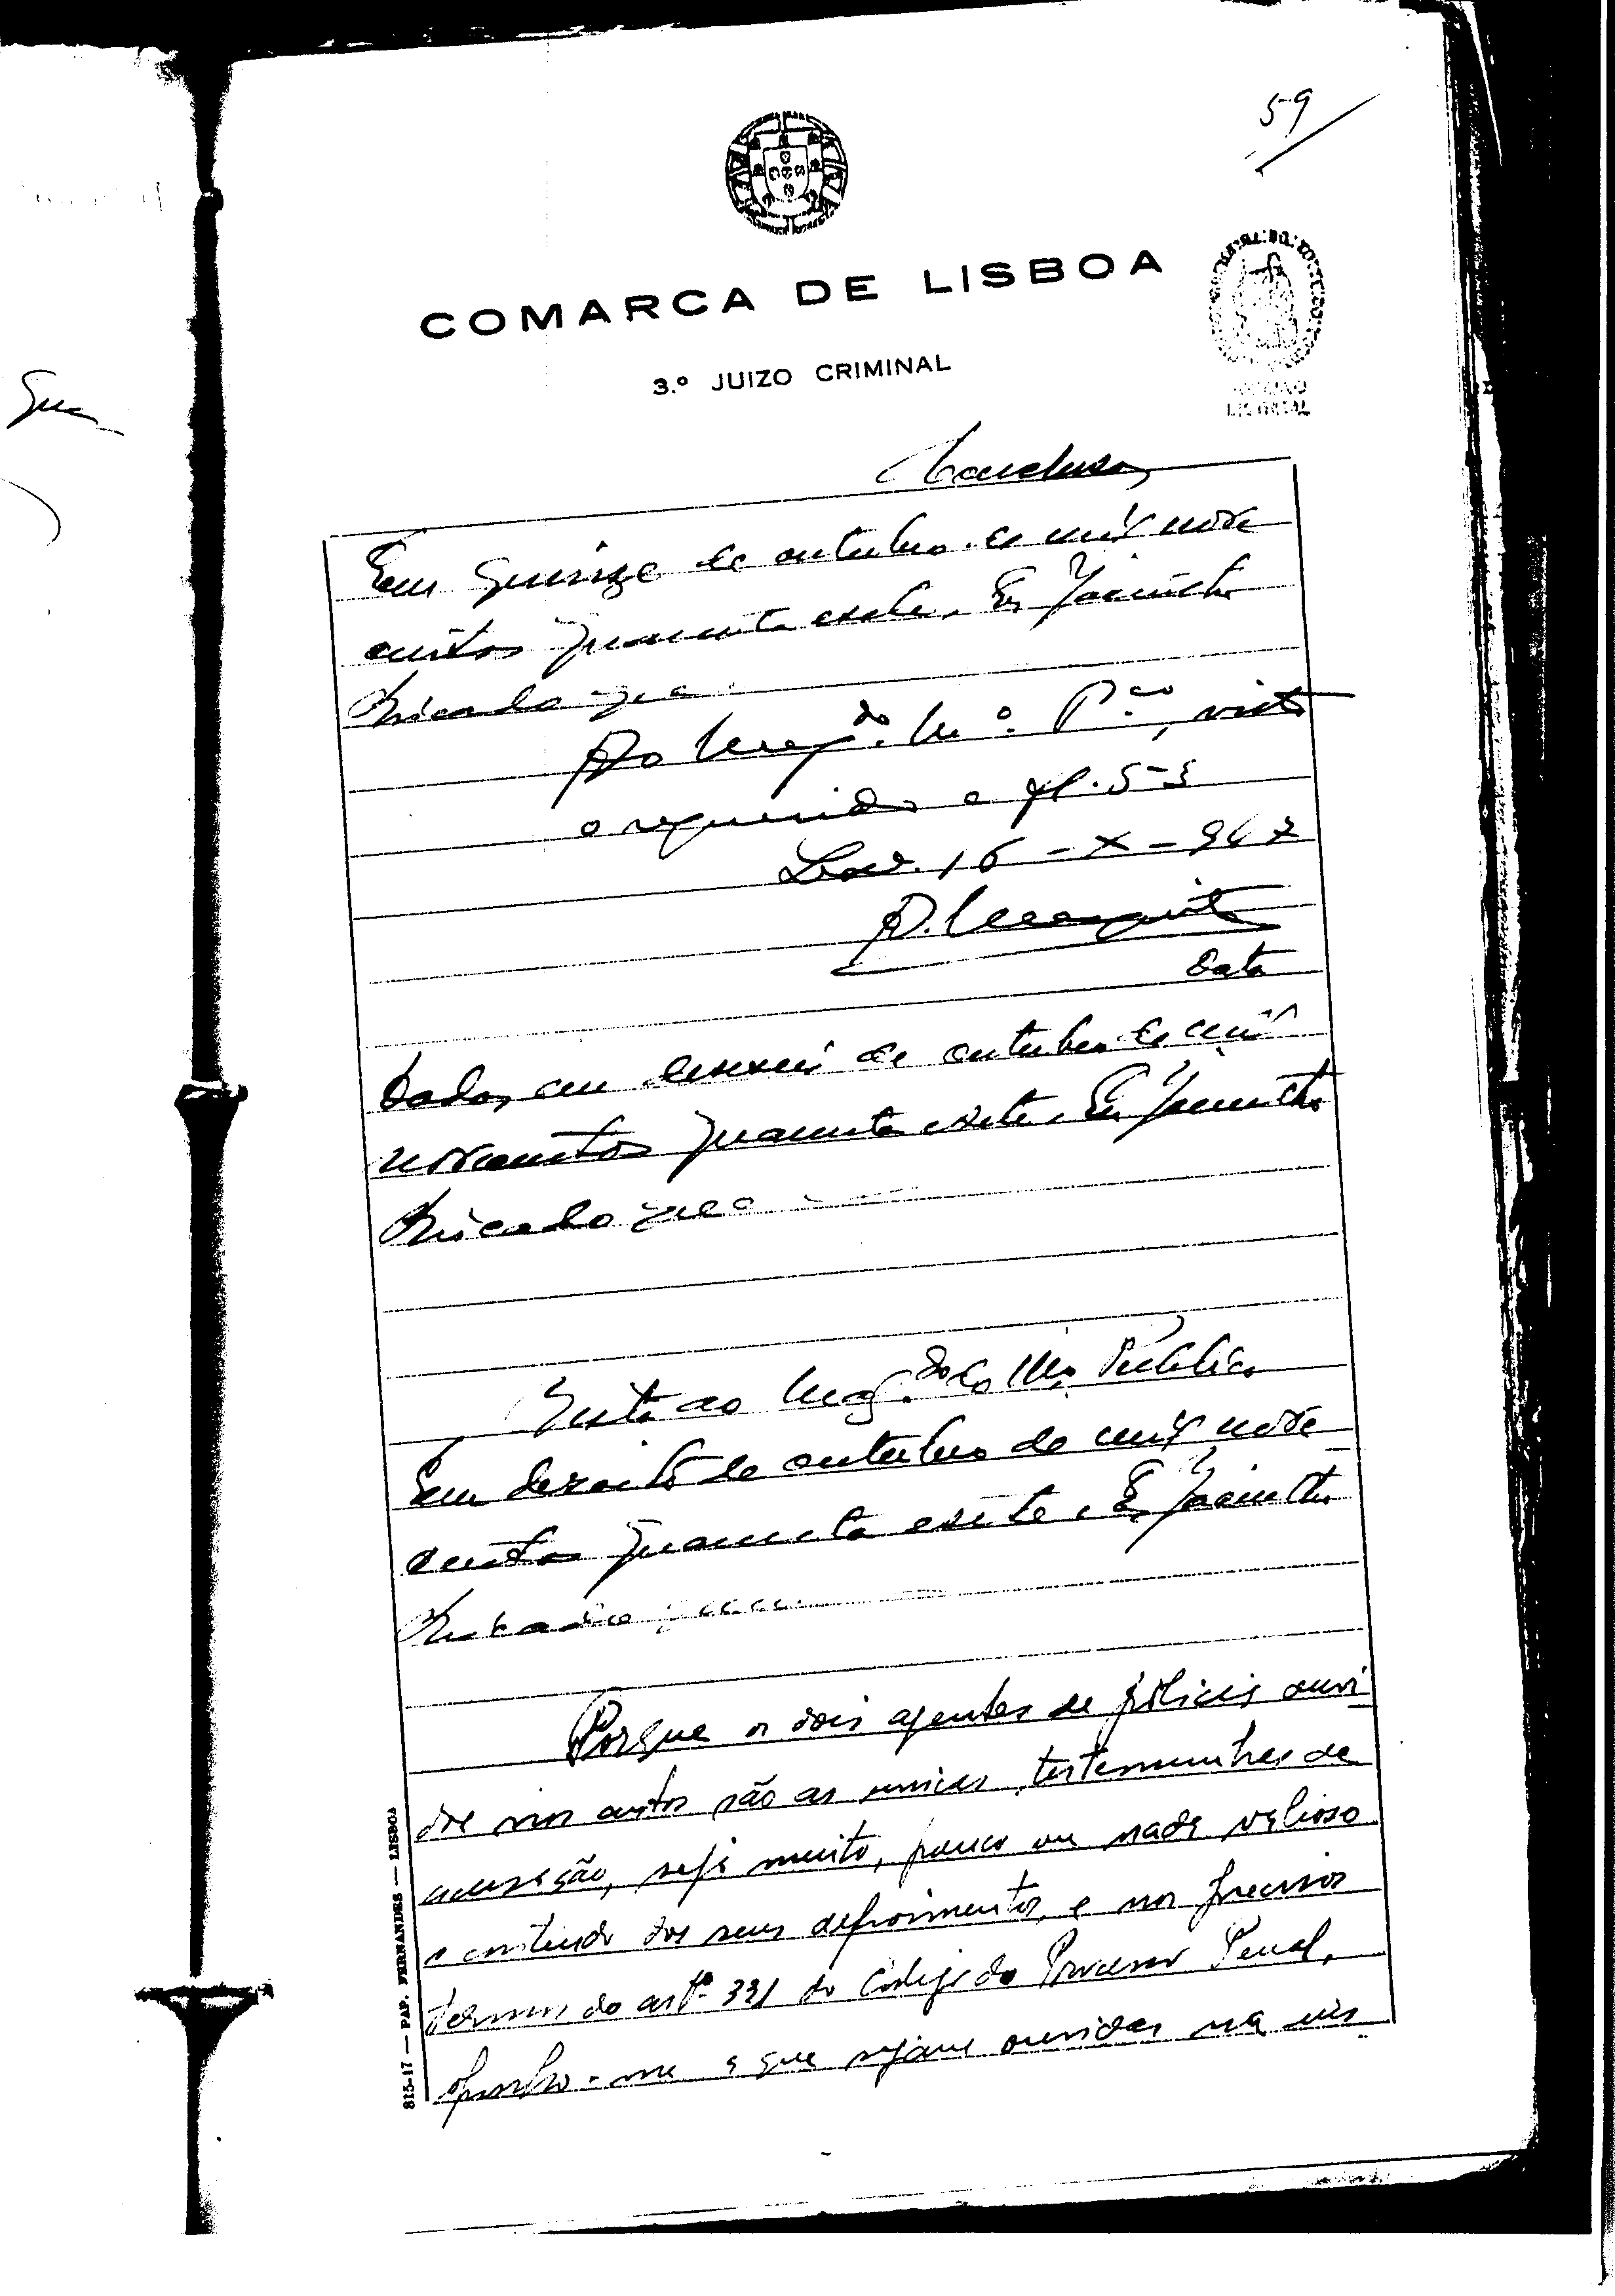 59
COMARCA DE LISBOA
3.º JUIZO CRIMINAL
Conclusão
Em quinze de outubro de mil nove
centos quarenta e sete. Eu Jacintho
Ao Mag.do M.º P.co, visto
o requerido a fl. 53
Lxa. 16-X-947
Data
Dados em dezeseis de outubro de mil
novecentos quarenta e sete. Eu Jacintho
Vista ao Mag.do do Mº. Publico
Em dezoito de outubro de mil nove
centos quarenta e sete. Eu Jacintho
Porque os dois agentes de policia ouvi
dos nos autos são as unicas testemunhas de
acusação, seja muito, pouco ou nada valioso
o conteudo dos seus depoimentos, e nos precisos
termos do artº 391 do Codigo do Processo Penal,
oponho-me a que sejam ouvidas na
815-17 — PAP. FERNANDES — LISBOA